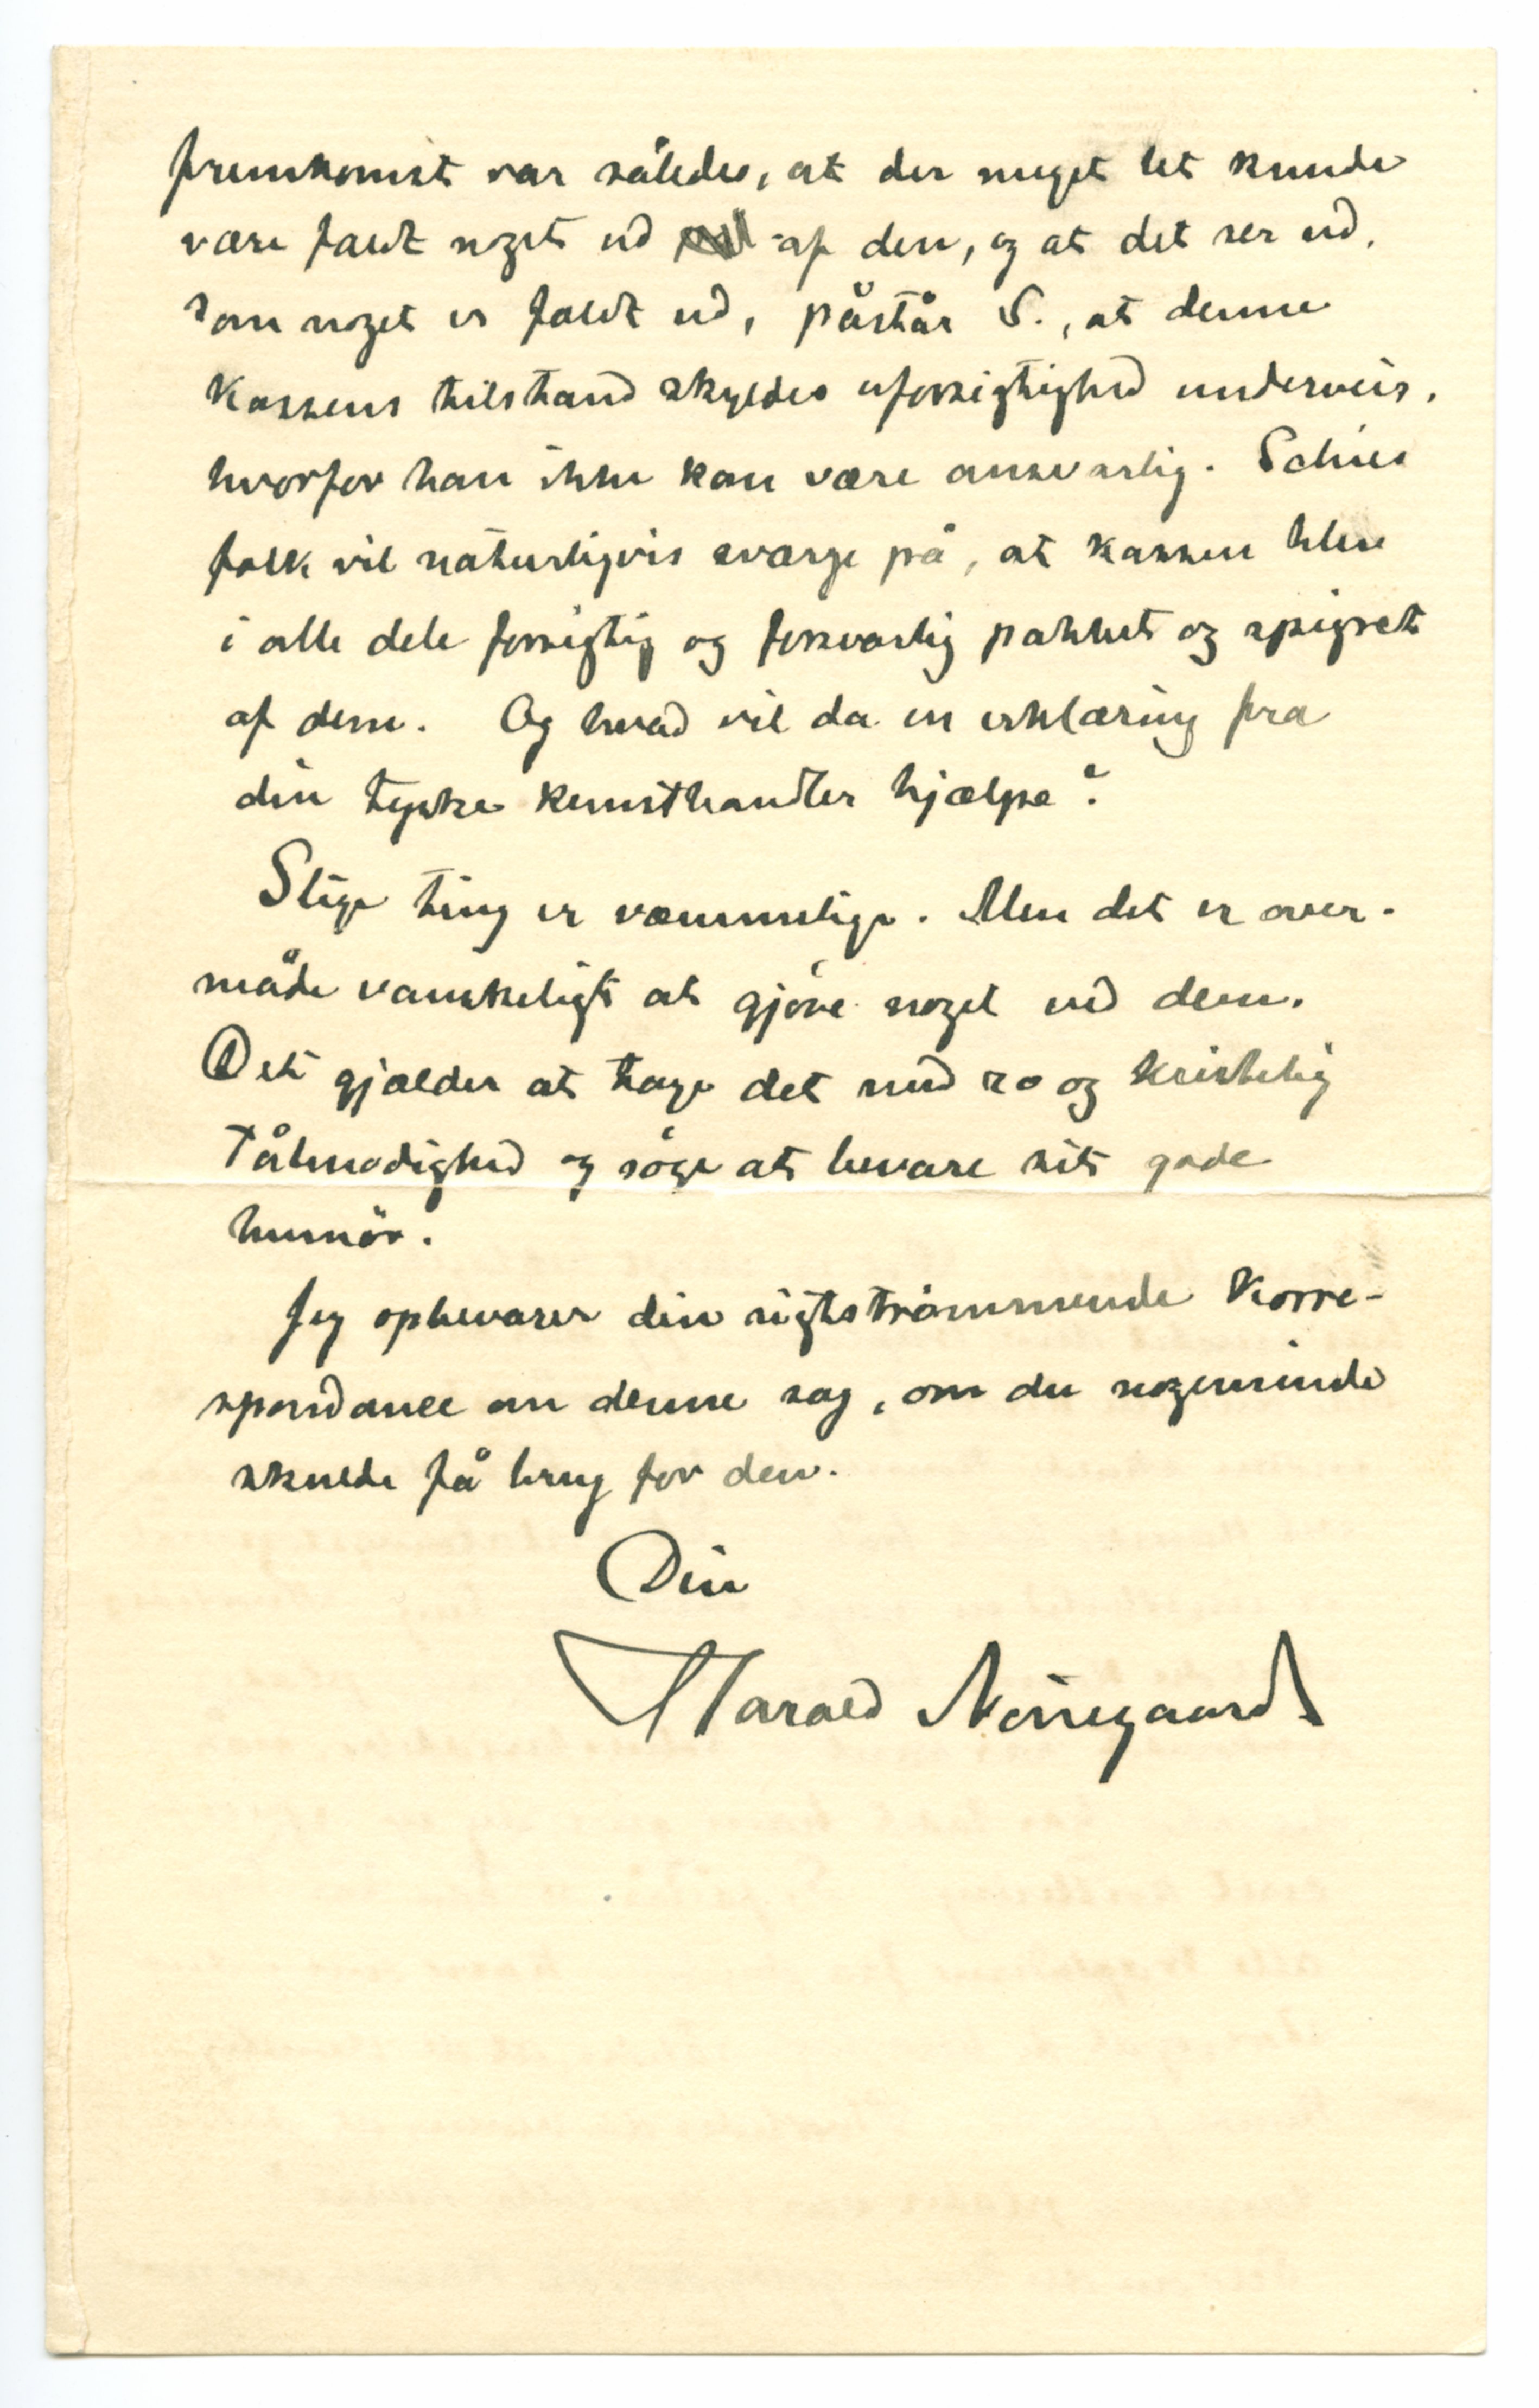 fremkomst var således, at der meget let kunde
være faldt noget ud af den, og at det ser ud,
som noget er faldt ud, påstår S., at denne
kassens tilstand skyldes uforsigtighed underveis,
hvorfor han ikke kan være ansvarlig. Schies
folk vil naturligvis sværge på, at kassen blev
i alle dele forsigtig og forsvarlig pakket og spigret
af dem. Og hvad vil da en erklæring fra
din tyske kunsthandler hjælpe?
Slige ting er væmmelige. Men det er over-
måde vanskeligt at gjöre noget ved dem.
Det gjælder at tage det med ro og kristelig
tålmodighed og söge at bevare sit gode
humör.
Jeg opbevarer din rigtströmmende korre-
spondance om denne sag, om du nogensinde
skulde få brug for den.
Din
Harald Nörregaard